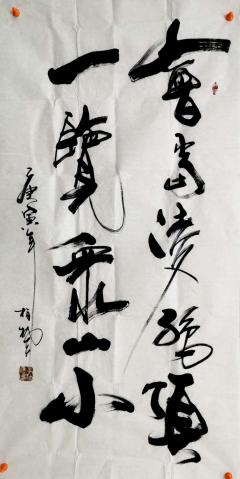 會當凌絕頂
一覽眾山小
庚寅年